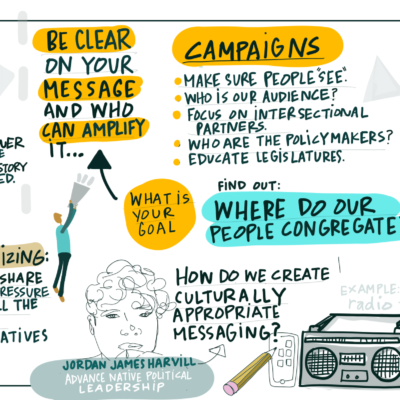 BE CLEAR
ON YOUR
MESSAGE
AND WHO
CAN AMPLIFY
IT...
CAMPAIGNS
MAKE SURE PEOPLE "SEE".
WHO IS OUR AUDIENCE?
FOCUS ON INTERSECTIONAL
PARTNERS.
WHO ARE THE POLICYMAKERS?
EDUCATE LEGISLATURES.
WHAT IS
YOUR
GOAL
FIND OUT:
WHERE DO OUR
PEOPLE CONGREGATE
IZING:
SHARE
HOW DO WE CREATE
CULTURALLY
APPROPRIATE
MESSAGING?
EXAMPLE:
radio
JORDAN JAMES HARVILL
ADVANCE NATIVE POLITICAL
LEADERSHIP